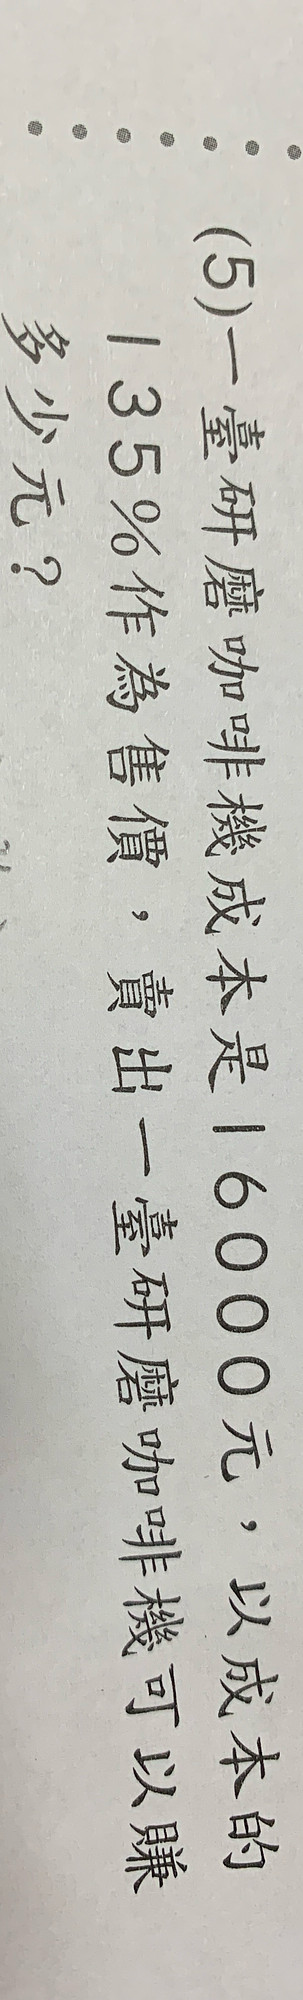 (5)一臺研磨咖啡機成本是16000元，以成本的
135%作為售價，賣出一臺研磨咖啡機可以賺
多少元？